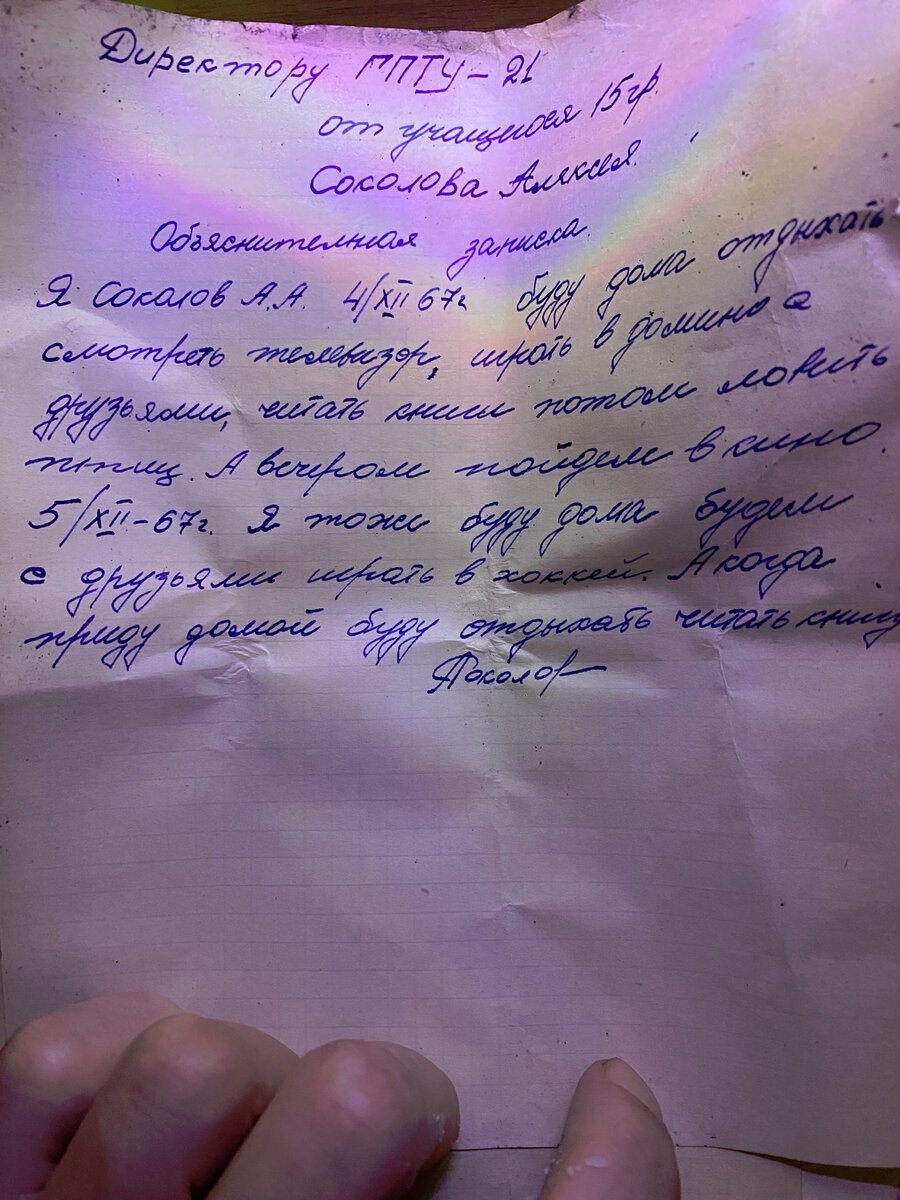 Директору ГПТУ-21
от учащигося 15гр.
Соколова Алексея.
Объяснителная записка.
Я Соколов А.А. 4/XII 67г буду дома отдыхать
смотреть телевизор, играть в домино с
друзьями, читать книги потом ловить
птиц. А вечером пойдем в кино
5/XII-67г. Я тоже буду дома будем
с друзьями играть в хоккей. А когда
приду домой буду отдыхать читать книгу
АСоколов